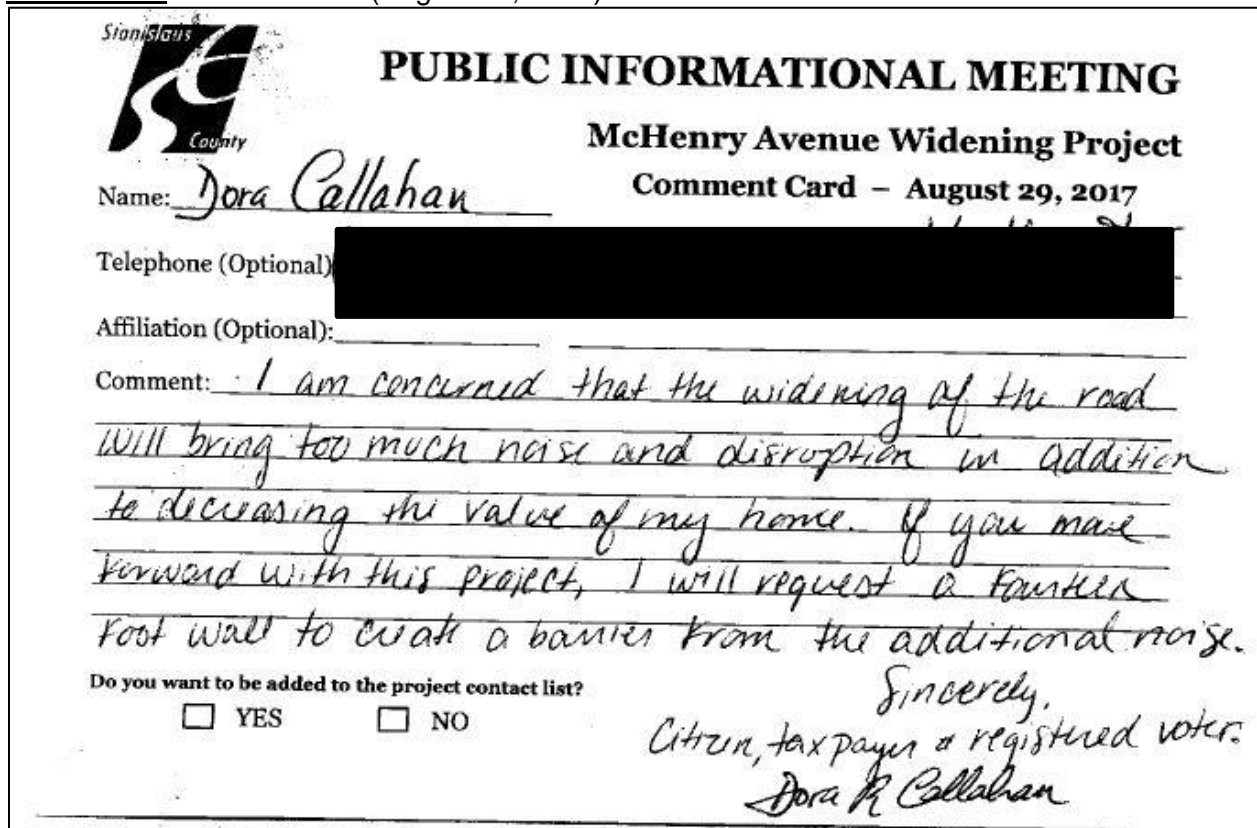 Stanislaus
County
PUBLIC INFORMATIONAL MEETING
McHenry Avenue Widening Project
Comment Card – August 29, 2017
Name: Dora Callahan
Telephone (Optional)
Affiliation (Optional):
Comment: I am concerned that the widening of the road
will bring too much noise and disruption in addition
to decreasing the value of my home. If you move
forward with this project, I will request a fourteen
foot wall to create a barrier from the additional noise.
Do you want to be added to the project contact list?
YES NO
Sincerely,
Citizen, taxpayer & registered voter.
Dora R Callahan